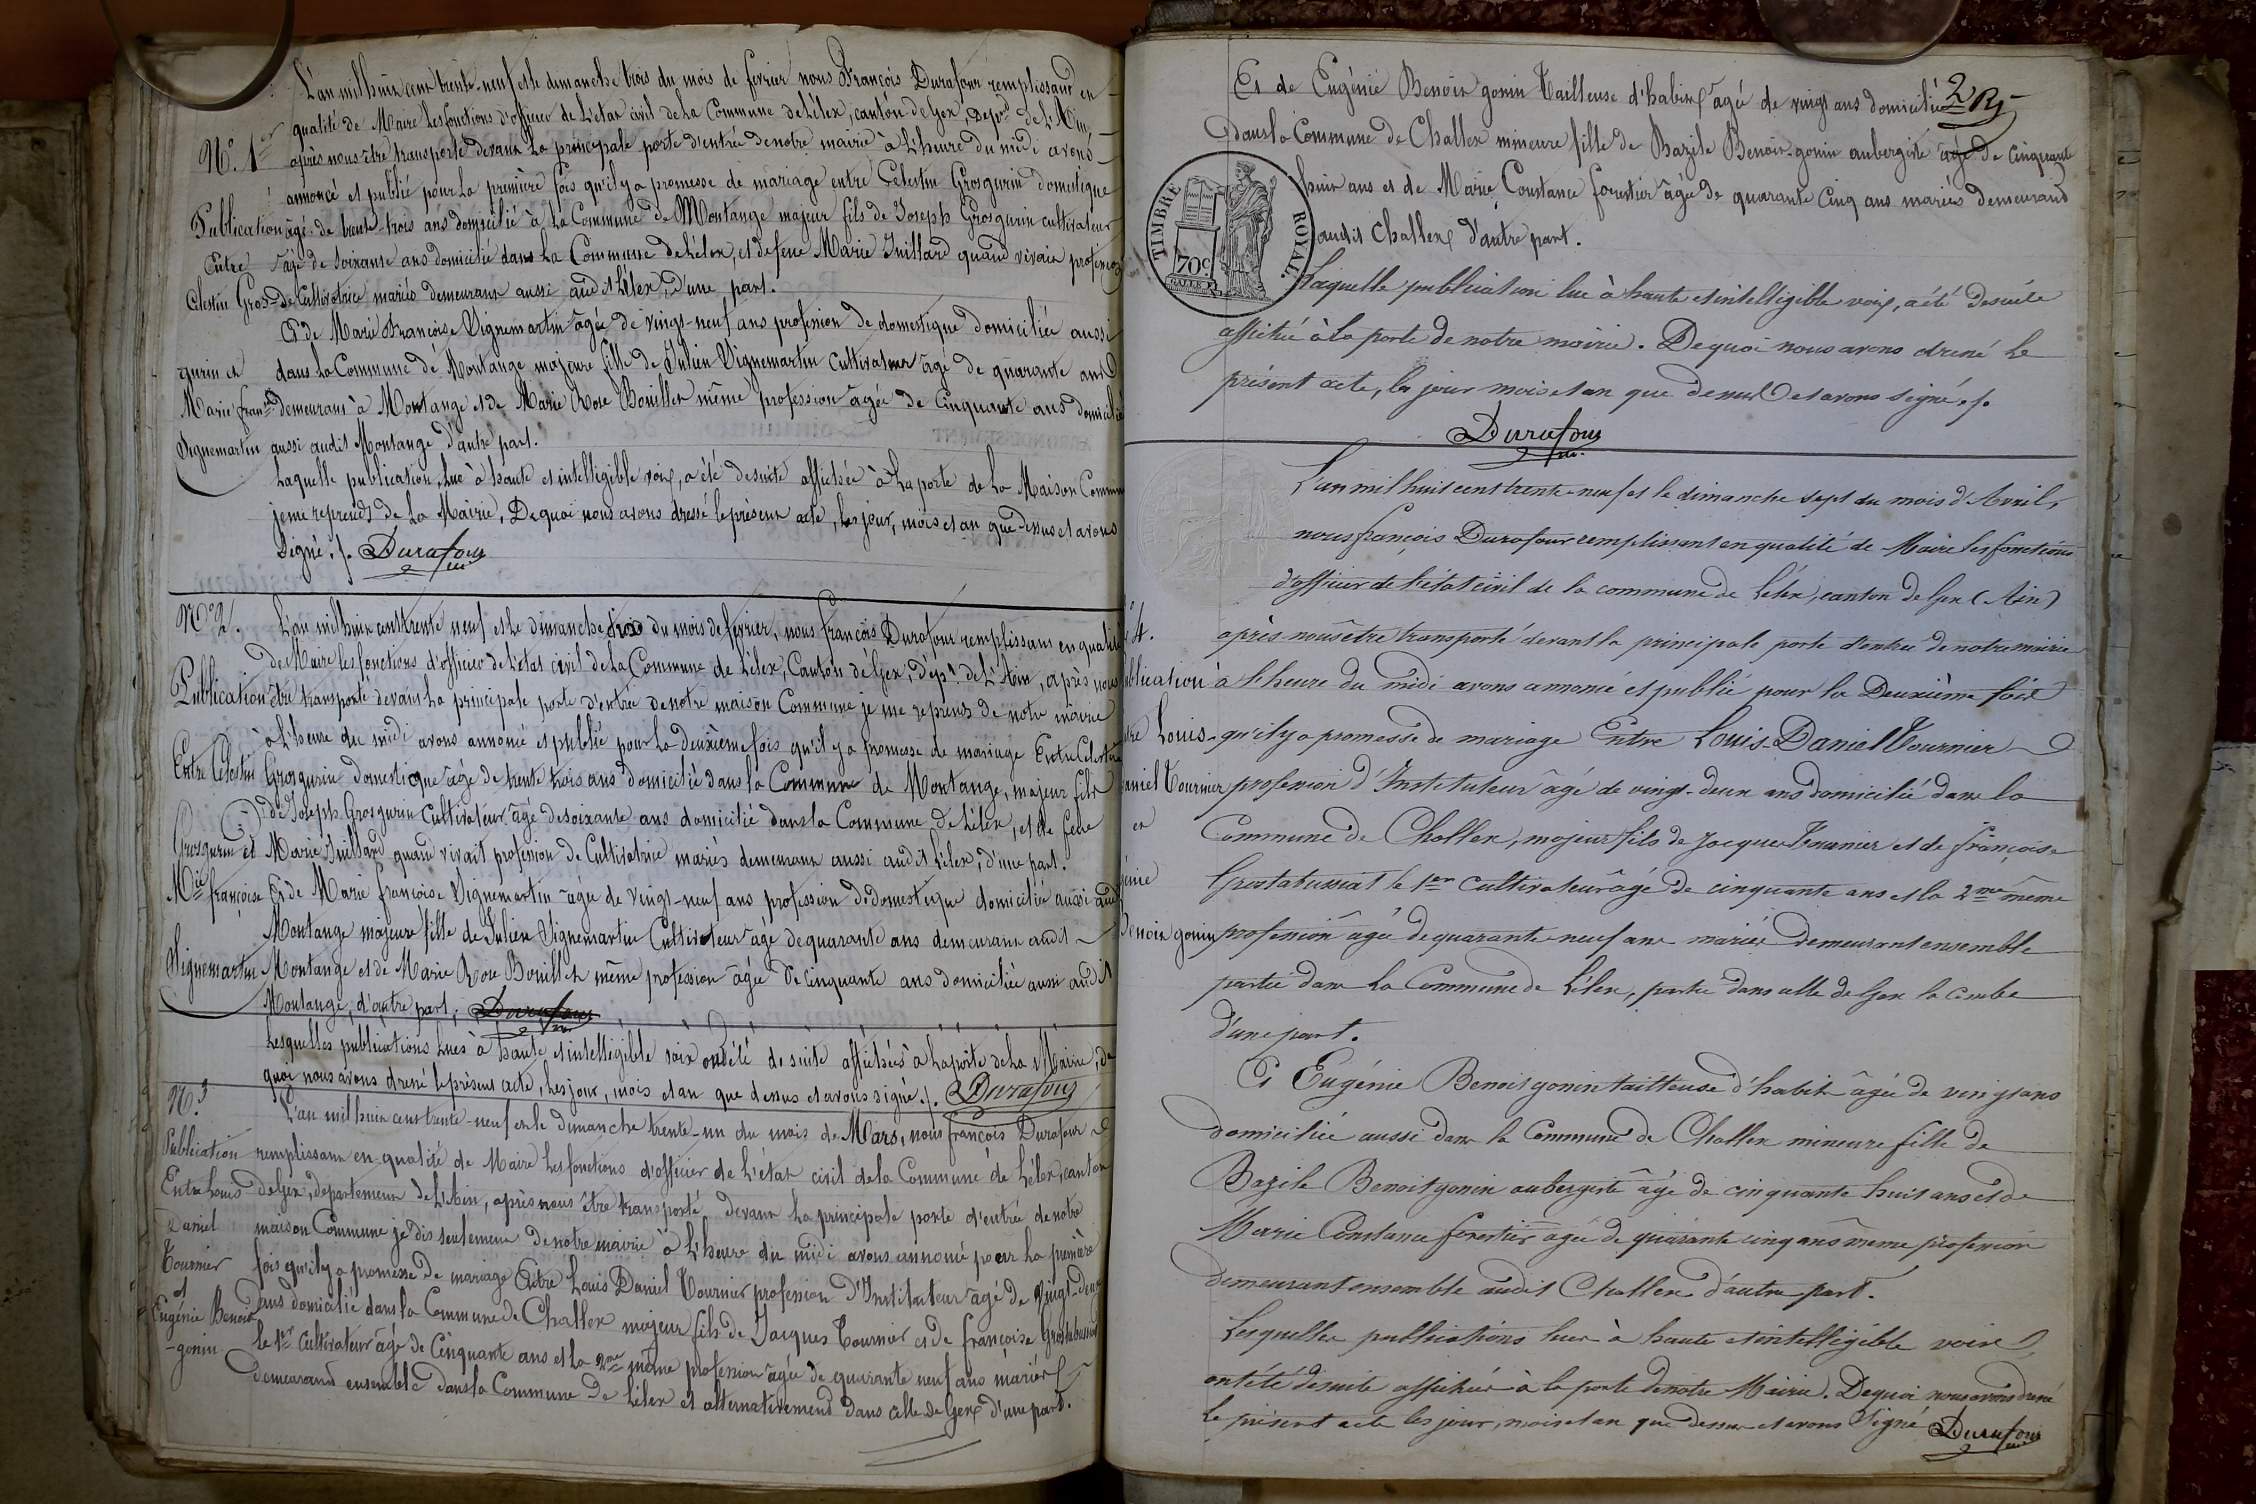 L'an mil huit cent trente-neuf et le dimanche trois du mois de février nous François Durafour remplissant en
qualité de Maire les fonctions d'officier de L'état civil de La Commune de Lélex, canton de Gex, Dépt de L'Ain,
N.º 1er après nous être transporté devant La principale porte d'entrée de notre mairie à L'heure du midi avons
annoncé et publié pour La première fois qu'il y a promesse de mariage entre Célestin Grosgurin domestique
Publication âgé de trente-trois ans domicilié à La Commune de Montange majeur fils de Joseph Grosgurin cultivateur
Entre âgé de soixante ans domicilié dans la Commune de Lélex, et de feue Marie Juillard quand vivait profession
Célestin Gros- de Cultivatrice mariés demeurant aussi audit Lélex, D'une part.
Et de Marie Françoise Vignemartin âgée de vingt-neuf ans profession de domestique domiciliée aussi
gurin et dans La Commune de Montange majeure fille de Julien Vignemartin cultivateur âgé de quarante ans
Marie franse demeurant à Montange et de Marie Rose Bouillet même profession âgée de Cinquante ans domiciliée
Vignemartin aussi audit Montange d'autre part.
Laquelle publication, Lue à haute et intelligible voix, a été desuite affichée à La porte de La Maison Commune
je me reprends de La Mairie, De quoi nous avons dressé le présent acte, les jour, mois et an que dessus et avons
Signé ./. Durafour
N.º 2. L'an mil huit cent trente neuf et le dimanche dix du mois de février, nous françois Durafour remplissant en qualité
de Maire les fonctions d'officier de L'état civil de La Commune de Lélex, Canton de Gex, dépt. de L'Ain, après nous
Publication être transporté devant La principale porte d'entrée de notre maison Commune je me reprends de notre mairie
à L'heure du midi avons annoncé et publié pour La deuxième fois qu'il y a promesse de mariage Entre Célestin
Entre Célestin Grosgurin domestique âgé de trente trois ans domicilié dans la Commune de Montange, majeur fils
de Joseph Grosgurin Cultivateur âgé de soixante ans domicilié dans la Commune de Lélex, et de feue
Grosgurin et Marie Juillard quand vivait profession de Cultivatrice mariés demeurant aussi audit Lélex, d'une part.
Mie françoise Et de Marie françoise Vignemartin âgée de vingt-neuf ans profession de domestique domiciliée aussi audit
Montange majeure fille de Julien Vignemartin Cultivateur âgé de quarante ans demeurant audit
Vignemartin Montange et de Marie Rose Bouillet même profession âgée de cinquante ans domiciliée aussi audit
Montange, d'autre part, Durafour
Lesquelles publications Lues à haute et intelligible voix ont été de suite affichées à La porte de La Mairie, de
quoi nous avons dressé le présent acte, les jour, mois et an que dessus et avons signé ./. Durafour
N.º 3 L'an mil huit cent trente-neuf et le dimanche trente-un du mois de Mars, nous françois Durafour
Publication remplissant en qualité de Maire les fonctions d'officier de L'état civil de la Commune de Lélex, canton
Entre Louis de Gex, département de L'Ain, après nous être transporté devant La principale porte d'entrée de notre
Daniel maison Commune je dis seulement de notre mairie à L'heure du midi avons annoncé pour La première
Tournier fois qu'il y a promesse de mariage Entre Louis Daniel Tournier profession D'Instituteur âgé de vingt-deux
et ans domicilié dans la Commune de Challex majeur fils de Jacques Tournier et de françoise Grostabussiat
Eugénie Benoit
-gonin le 1er Cultivateur âgé de Cinquante ans et La 2me même profession âgée de quarante neuf ans mariés
demeurant ensemble dans la Commune de Lélex et alternativement dans celle de Gex d'une part.
2 Rt
Et de Eugénie Benoit gonin Tailleuse d'habits âgée de vingt ans domiciliée
Dans la Commune de Challex mineure fille de Bazile Benoit-gonin aubergiste âgé de cinquante
huit ans et de Marie Constance forestier âgée de quarante cinq ans mariés demeurant
audit Challex d'autre part.
TIMBRE ROYAL.
70c
Laquelle publication lue à haute et intelligible voix, a été desuite
affichée à la porte de notre mairie. De quoi nous avons dressé le
présent acte, les jour mois et an que dessus et avons signé ./.
Durafour
L'an mil huit cent trente-neuf et le dimanche sept du mois d'Avril,
nous françois Durafour remplissant en qualité de Maire les fonctions
d'officier de l'état civil de la commune de Lélex, canton de Gex (Ain)
4. après nous être transporté devant la principale porte d'entrée de notre mairie
Publication à l'heure du midi avons annoncé et publié pour la Deuxième fois
Entre Louis- qu'il y a promesse de mariage Entre Louis-Daniel Tournier
Daniel Tournier profession d'Instituteur âgé de vingt-deux ans domicilié dans la
et Commune de Challex, majeur fils de Jacques Tournier et de françoise
Eugénie Grostabussiat le 1er cultivateur âgé de cinquante ans et la 2me même
Benoit gonin profession âgée de quarante-neuf ans mariés demeurant ensemble
partie dans La Commune de Lélex, partie dans celle de Gex la combe
d'une part.
Et Eugénie Benoit gonin tailleuse d'habits âgée de vingt ans
domiciliée aussi dans la Commune de Challex mineure fille de
Bazile Benoit gonin aubergiste âgé de cinquante huit ans et de
Marie Constance forestier âgée de quarante cinq ans même profession
demeurant ensemble audit Challex d'autre part.
Lesquelles publications lues à haute et intelligible voix
ont été desuite affichées à la porte de notre Mairie. De quoi nous avons dressé
le présent acte les jour, mois et an que dessus et avons signé Durafour